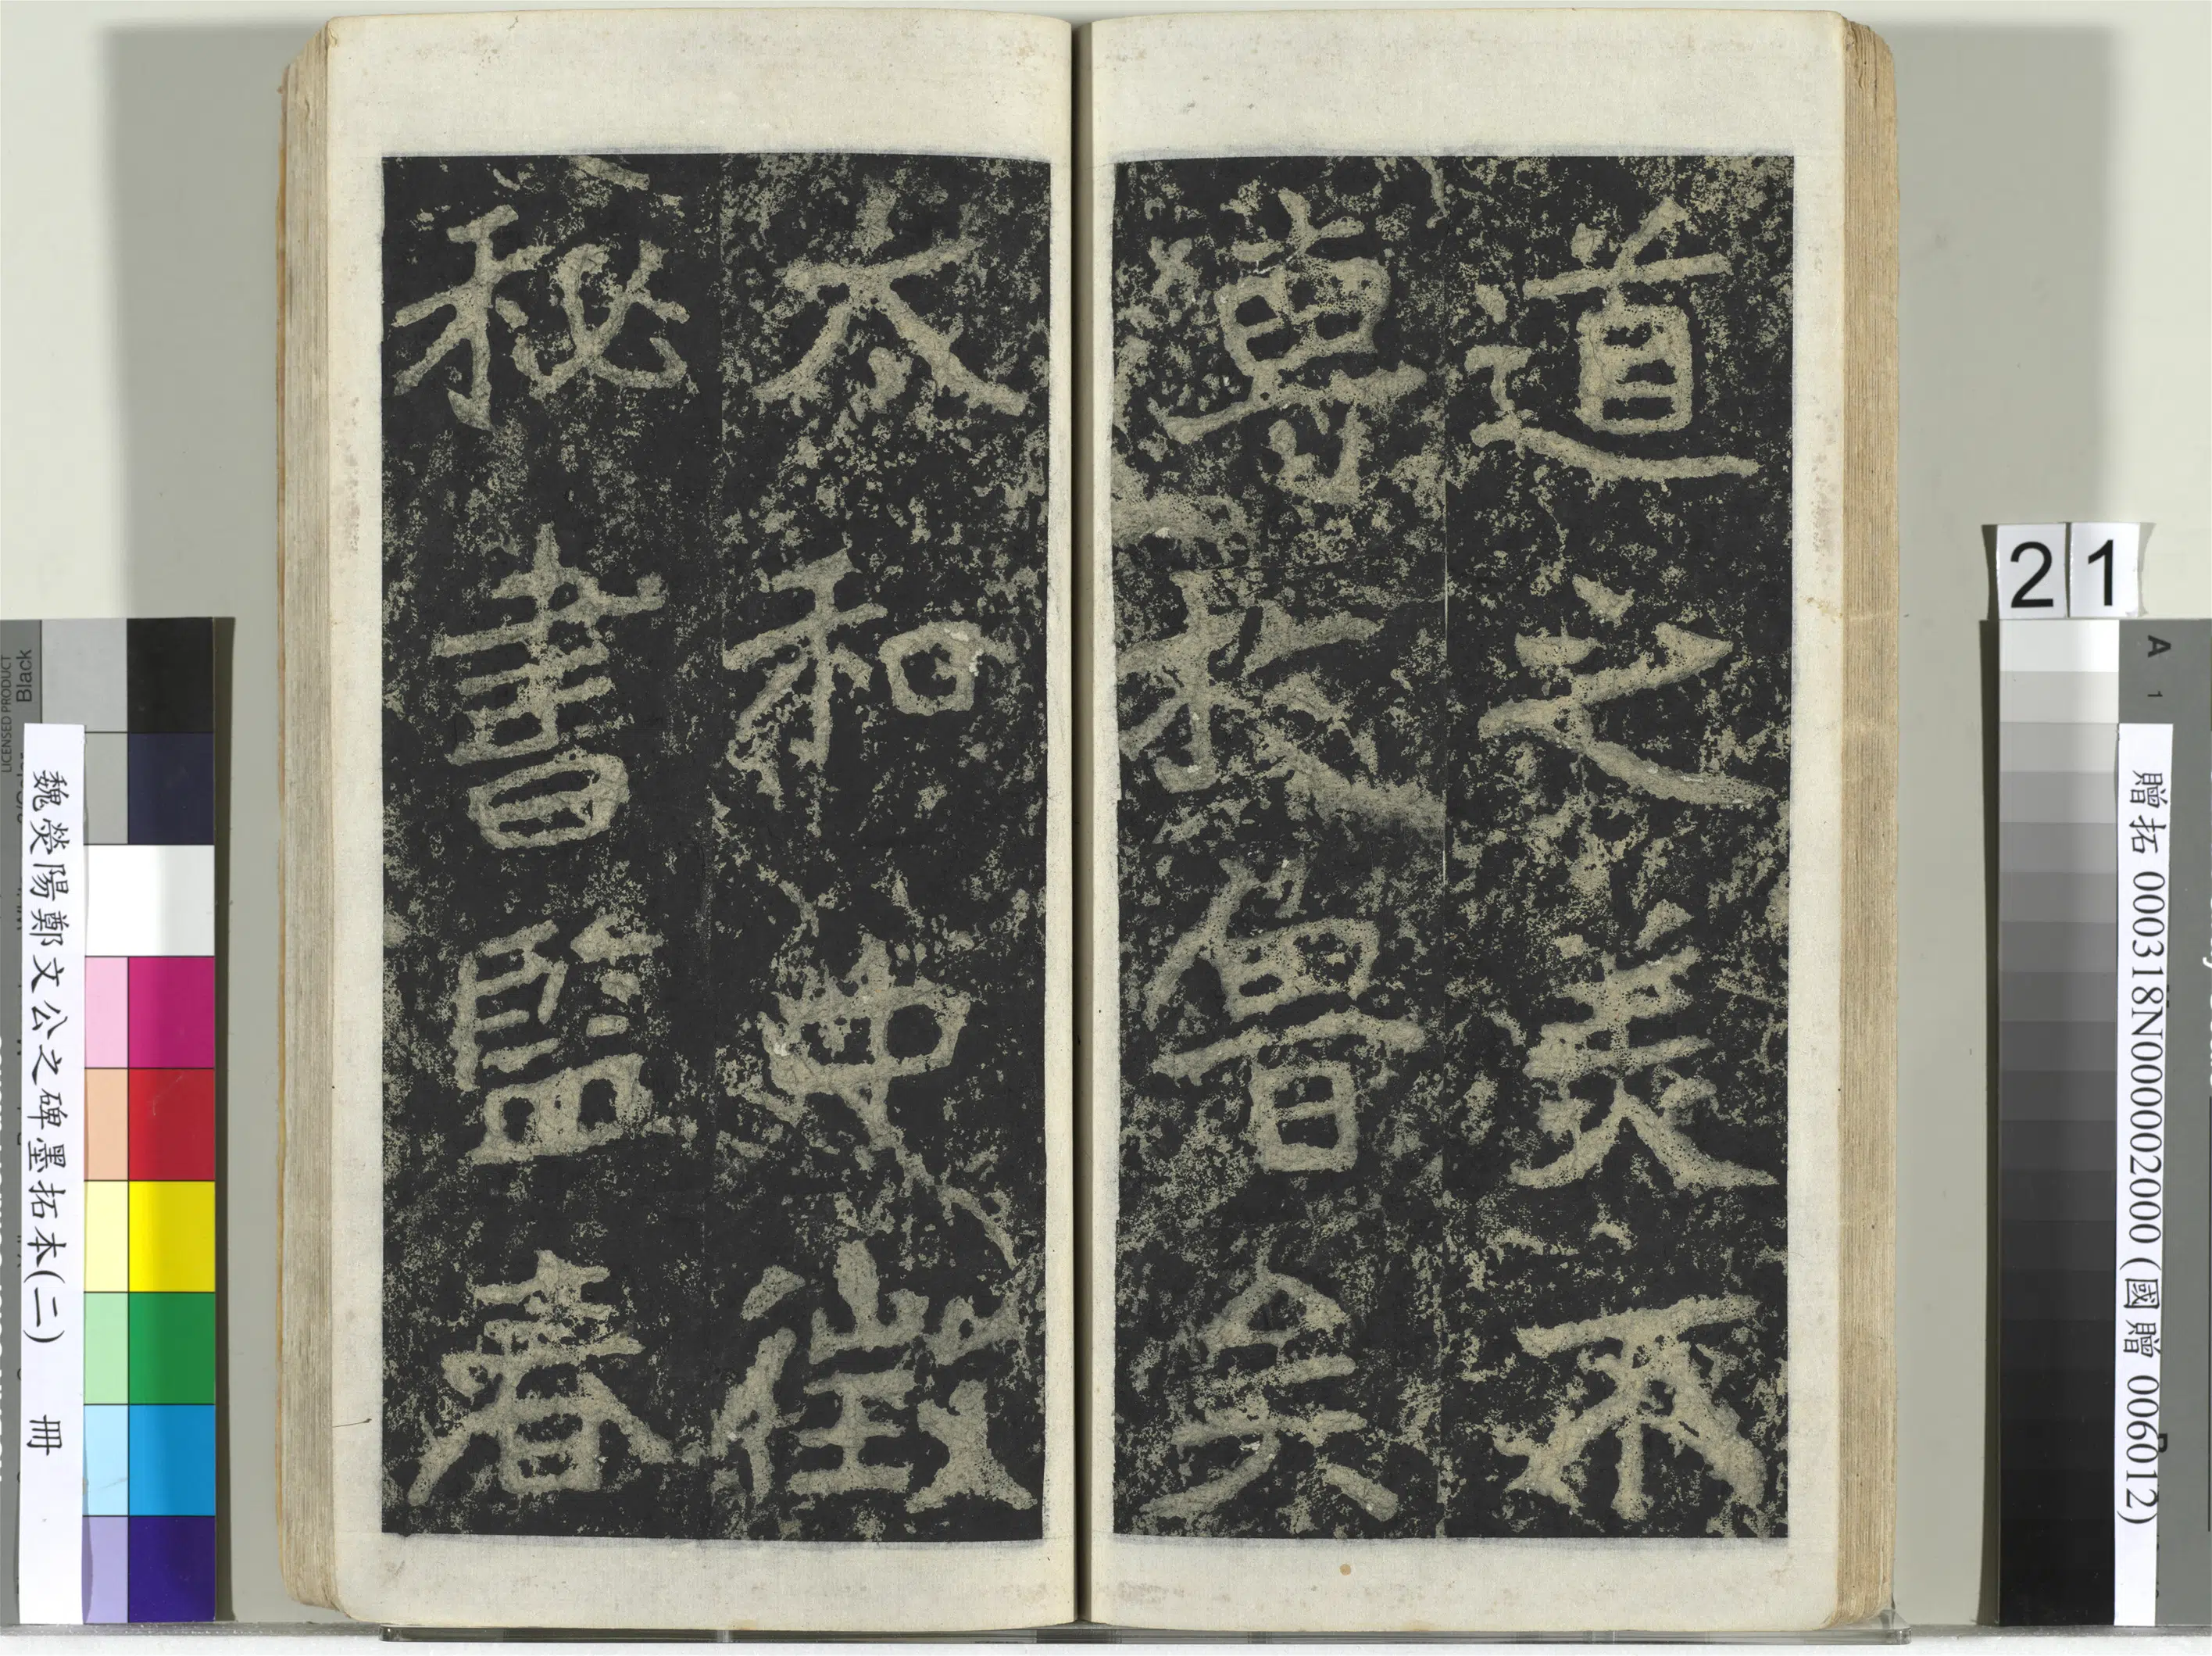 道之美不
專於魯矣
太和中徵
秘書監春
21
A 1
贈拓 000318N000002000 (國贈 006012)
魏熒陽鄭文公之碑墨拓本(二) 冊
LICENSED PRODUCT
Black